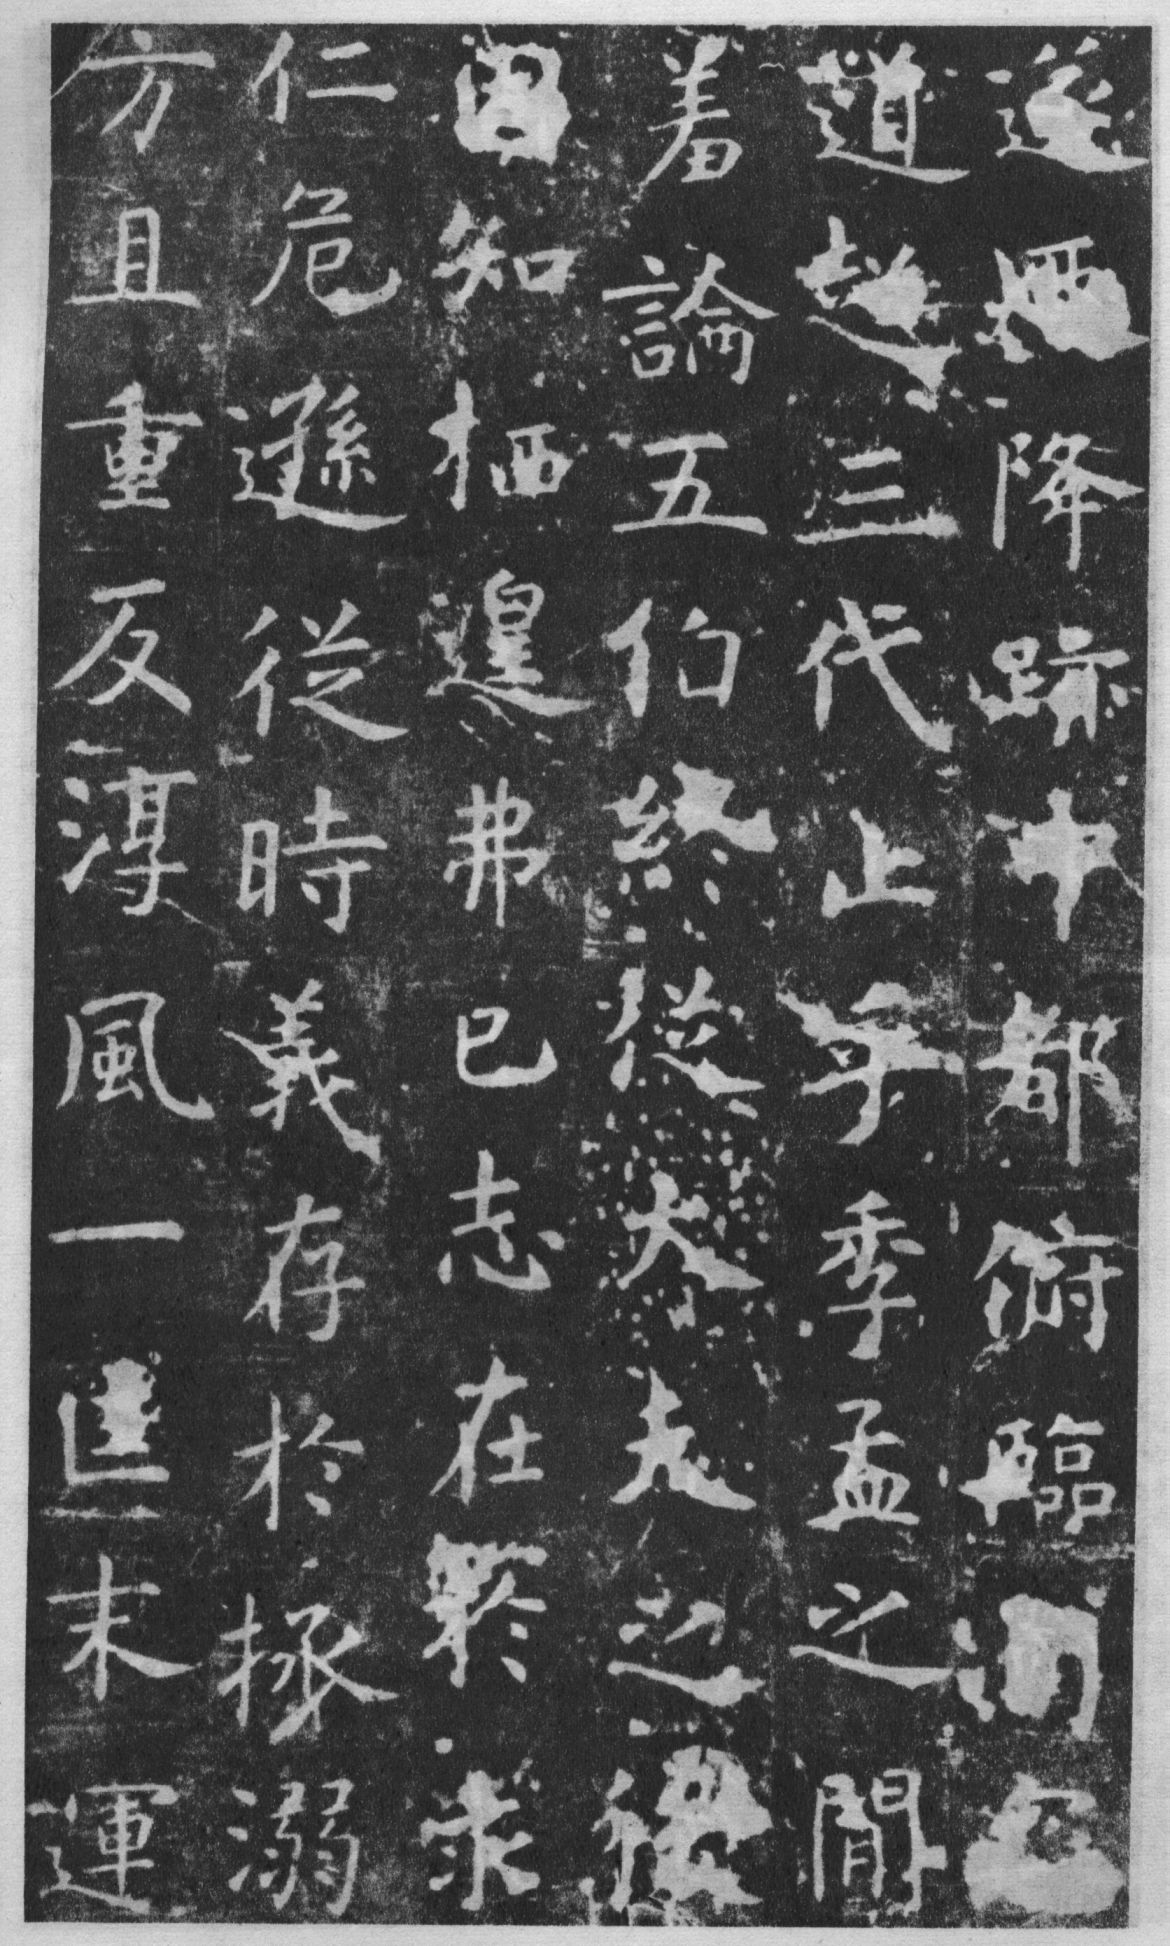 遂廼降跡中都俯臨司寇
道超三代止乎季孟之間
羞論五伯終從大夫之後
固知栖遑弗已志在於求
仁危遜從時義存於拯溺
方且重反淳風一匡末運